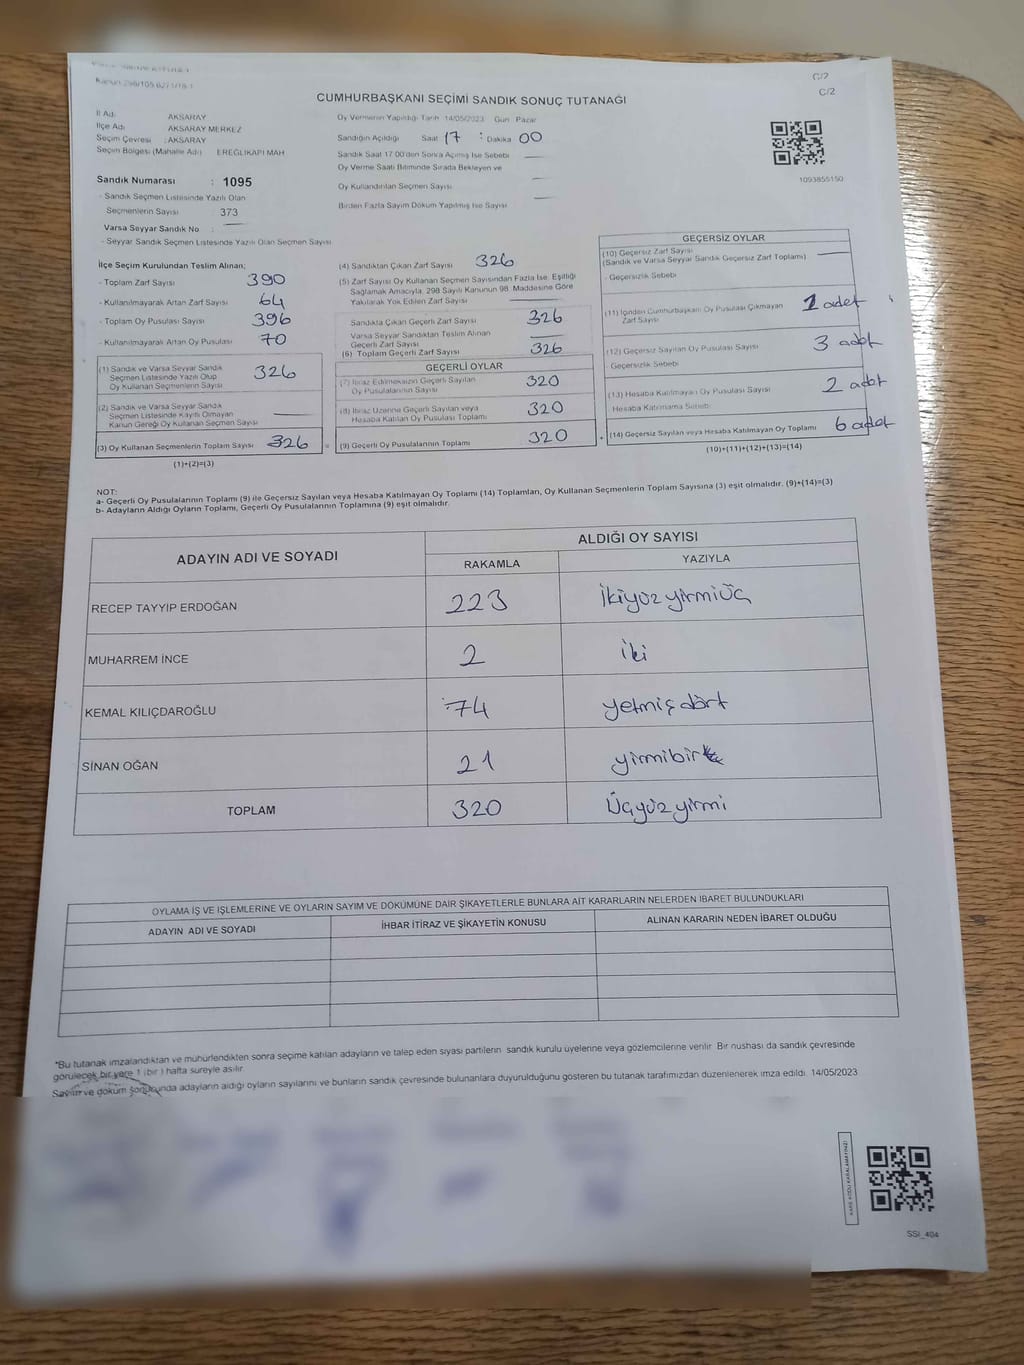 Kanun 298/105 6271/18-1
C/2
C/2
CUMHURBAŞKANI SEÇİMİ SANDIK SONUÇ TUTANAĞI
İl Adı : AKSARAY
İlçe Adı : AKSARAY MERKEZ
Seçim Çevresi : AKSARAY
Seçim Bölgesi (Mahalle Adı) : EREĞLİKAPI MAH
Sandık Numarası : 1095
- Sandık Seçmen Listesinde Yazılı Olan
Seçmenlerin Sayısı : 373
Varsa Seyyar Sandık No :
- Seyyar Sandık Seçmen Listesinde Yazılı Olan Seçmen Sayısı
Oy Vermenin Yapıldığı Tarih 14/05/2023 Gün Pazar
Sandığın Açıldığı Saat 17 : Dakika 00
Sandık Saat 17:00'den Sonra Açılmış İse Sebebi
Oy Verme Saati Bitiminde Sırada Bekleyen ve
Oy Kullandırılan Seçmen Sayısı
Birden Fazla Sayım Döküm Yapılmış İse Sayısı
1093855150
İlçe Seçim Kurulundan Teslim Alınan;
- Toplam Zarf Sayısı 390
- Kullanılmayarak Artan Zarf Sayısı 64
- Toplam Oy Pusulası Sayısı 396
- Kullanılmayarak Artan Oy Pusulası 70
(1) Sandık ve Varsa Seyyar Sandık
Seçmen Listesinde Yazılı Olup
Oy Kullanan Seçmenlerin Sayısı 326
(2) Sandık ve Varsa Seyyar Sandık
Seçmen Listesinde Kayıtlı Olmayan
Kanun Gereği Oy Kullanan Seçmen Sayısı
(3) Oy Kullanan Seçmenlerin Toplam Sayısı 326
(1)+(2)=(3)
(4) Sandıktan Çıkan Zarf Sayısı 326
(5) Zarf Sayısı Oy Kullanan Seçmen Sayısından Fazla İse, Eşitliği
Sağlamak Amacıyla, 298 Sayılı Kanunun 98. Maddesine Göre
Yakılarak Yok Edilen Zarf Sayısı
Sandıkta Çıkan Geçerli Zarf Sayısı 326
Varsa Seyyar Sandıktan Teslim Alınan
Geçerli Zarf Sayısı
(6) Toplam Geçerli Zarf Sayısı 326
GEÇERLİ OYLAR
(7) İtiraz Edilmeksizin Geçerli Sayılan
Oy Pusulalarının Sayısı 320
(8) İtiraz Üzerine Geçerli Sayılan veya
Hesaba Katılan Oy Pusulası Toplamı 320
(9) Geçerli Oy Pusulalarının Toplamı 320
GEÇERSİZ OYLAR
(10) Geçersiz Zarf Sayısı
(Sandık ve Varsa Seyyar Sandık Geçersiz Zarf Toplamı)
- Geçersizlik Sebebi
(11) İçinden Cumhurbaşkanı Oy Pusulası Çıkmayan
Zarf Sayısı 1 adet
(12) Geçersiz Sayılan Oy Pusulası Sayısı 3 adet
Geçersizlik Sebebi
(13) Hesaba Katılmayan Oy Pusulası Sayısı 2 adet
Hesaba Katılmama Sebebi
+ (14) Geçersiz Sayılan veya Hesaba Katılmayan Oy Toplamı 6 adet
(10)+(11)+(12)+(13)=(14)
NOT:
a- Geçerli Oy Pusulalarının Toplamı (9) ile Geçersiz Sayılan veya Hesaba Katılmayan Oy Toplamı (14) Toplamları, Oy Kullanan Seçmenlerin Toplam Sayısına (3) eşit olmalıdır. (9)+(14)=(3)
b- Adayların Aldığı Oyların Toplamı, Geçerli Oy Pusulalarının Toplamına (9) eşit olmalıdır.
ADAYIN ADI VE SOYADI
ALDIĞI OY SAYISI
RAKAMLA YAZIYLA
RECEP TAYYIP ERDOĞAN 223 ikiyüzyirmiüç
MUHARREM İNCE 2 iki
KEMAL KILIÇDAROĞLU 74 yetmişdört
SİNAN OĞAN 21 yirmibir
TOPLAM 320 Üçyüzyirmi
OYLAMA İŞ VE İŞLEMLERİNE VE OYLARIN SAYIM VE DÖKÜMÜNE DAİR ŞİKAYETLERLE BUNLARA AİT KARARLARIN NELERDEN İBARET BULUNDUKLARI
ADAYIN ADI VE SOYADI İHBAR İTİRAZ VE ŞİKAYETİN KONUSU ALINAN KARARIN NEDEN İBARET OLDUĞU
*Bu tutanak imzalandıktan ve mühürlendikten sonra seçime katılan adayların ve talep eden siyasi partilerin sandık kurulu üyelerine veya gözlemcilerine verilir. Bir nüshası da sandık çevresinde
görülecek bir yere 1 (bir) hafta süreyle asılır.
Sayım ve döküm sonucunda adayların aldığı oyların sayılarını ve bunların sandık çevresinde bulunanlara duyurulduğunu gösteren bu tutanak tarafımızdan düzenlenerek imza edildi. 14/05/2023
SSI_404